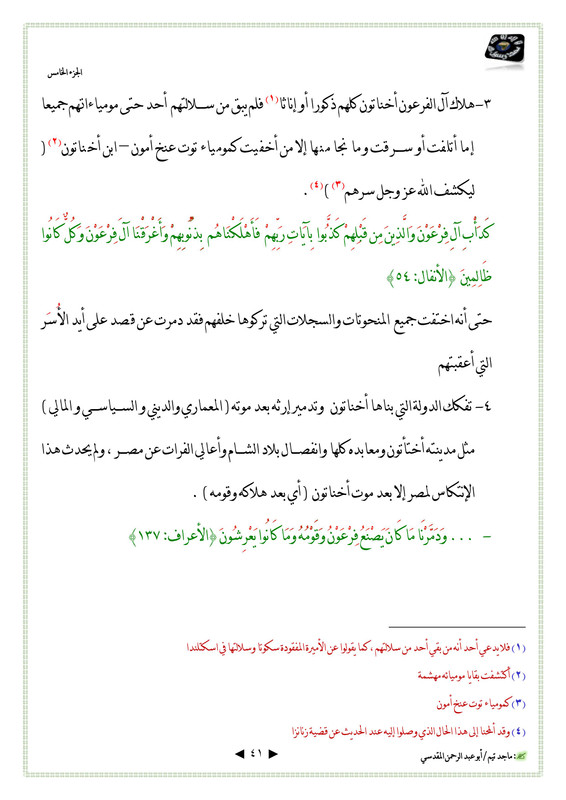 الجزء الخامس
٣- هلاك آل الفرعون أخناتون كلهم ذكورا أو إناثا (١) فلم يبق من سلالتهم أحد حتى مومياءاتهم جميعا
إما أتلفت أو سرقت وما نجا منها إلا من أخفيت كمومياء توت عنخ أمون – ابن أخناتون (٢) (
ليكشف الله عز وجل سرهم (٣) ) (٤) .
كَدَأْبِ آلِ فِرْعَوْنَ وَالَّذِينَ مِن قَبْلِهِمْ كَذَّبُوا بِآيَاتِ رَبِّهِمْ فَأَهْلَكْنَاهُم بِذُنُوبِهِمْ وَأَغْرَقْنَا آلَ فِرْعَوْنَ وَكُلٌّ كَانُوا
ظَالِمِينَ ﴿الأنفال: ٥٤﴾
حتى أنه اختفت جميع المنحوتات والسجلات التي تركوها خلفهم فقد دمرت عن قصد على أيد الأُسَر
التي أعقبتهم
٤- تفكك الدولة التي بناها أخناتون وتدمير إرثه بعد موته ( المعماري والديني و السياسي و المالي )
مثل مدينته أختأتون ومعابده كلها وانفصال بلاد الشام وأعالي الفرات عن مصر ، ولم يحدث هذا
الإنتكاس لمصر إلا بعد موت أخناتون ( أي بعد هلاكه وقومه ) .
- ... وَدَمَّرْنَا مَا كَانَ يَصْنَعُ فِرْعَوْنُ وَقَوْمُهُ وَمَا كَانُوا يَعْرِشُونَ ﴿الأعراف: ١٣٧﴾
(١) فلا يدعي أحد أنه من بقي أحد من سلالتهم ، كما يقولوا عن الأميرة المفقودة سكوتا وسلالتها في اسكتلندا
(٢) أكتشفت بقايا مومياته مهشمة
(٣) كمومياء توت عنخ أمون
(٤) وقد ألمحنا إلى هذا الحال الذي وصلوا إليه عند الحديث عن قضية زنانزا
: ماجد تيم / أبو عبد الرحمن المقدسي
◄ ٤١ ►